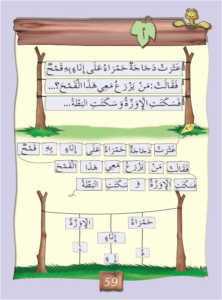 أ
عَثَرَتْ دَجَاجَةٌ حَمْرَاءُ عَلَى إِنَاءٍ بِهِ قَمْحٌ
فَقَالَتْ: مَنْ يَزْرَعُ مَعِي هَذَا الْقَمْحَ؟...
فَسَكَتَتِ الْإِوَزَّةُ وَسَكَتَتِ الْبَطَّةُ...
عَثَرَتْ دَجَاجَةٌ حَمْرَاءُ عَلَى إِنَاءٍ بِهِ قَمْحٌ
فَقَالَتْ مَنْ يَزْرَعُ مَعِي هَذَا الْقَمْحَ
فَسَكَتَتِ الْإِوَزَّةُ وَ سَكَتَتِ الْبَطَّةُ
حَمْرَاءُ إِنَاءٍ الْإِوَزَّةُ
59